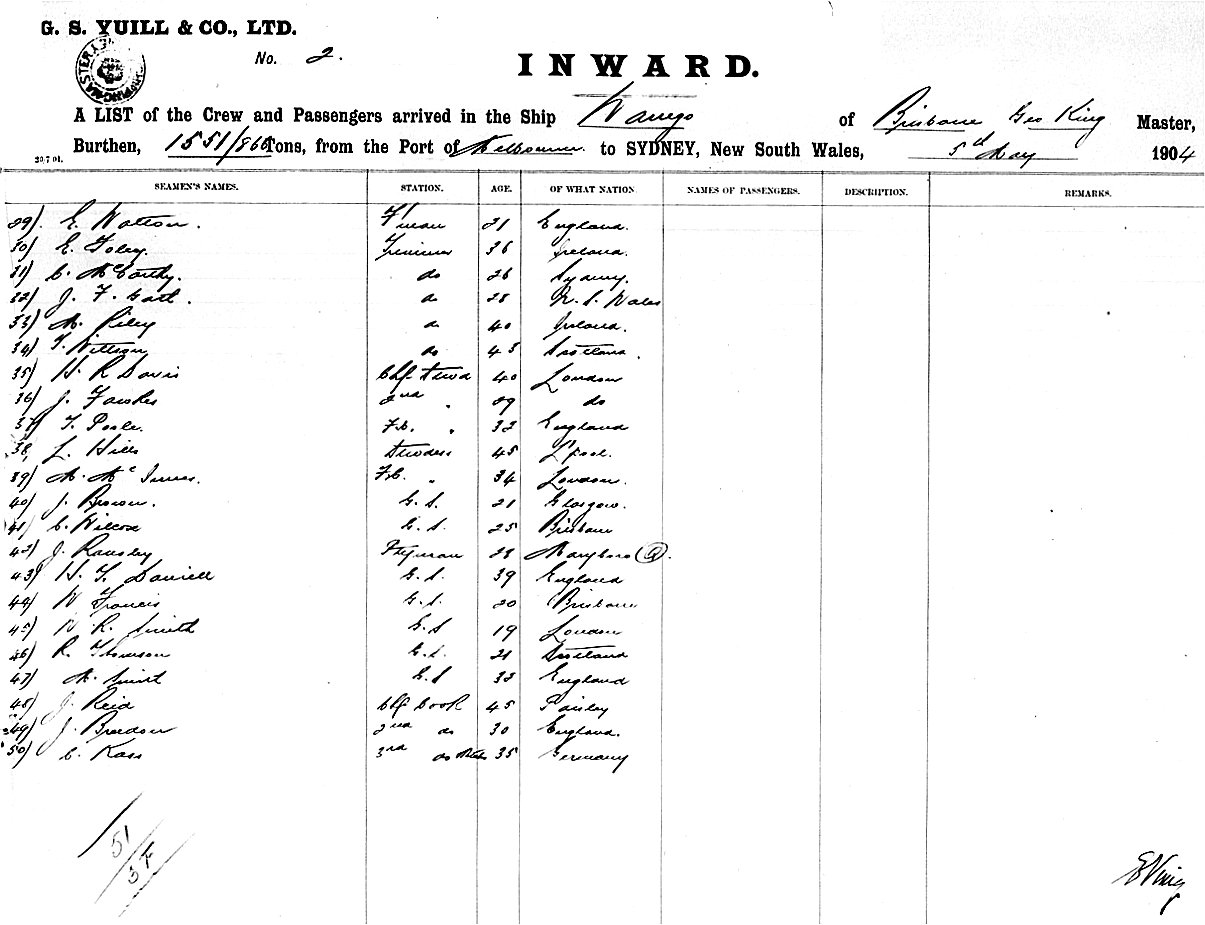 G. S. YUILL & CO., LTD.
No. 2.
INWARD.
A LIST of the Crew and Passengers arrived in the Ship Warrego of Brisbane Geo King Master,
Burthen, 1551/860 Tons, from the Port of Melbourne to SYDNEY, New South Wales, 5th May 1904
20.7.01.
SEAMEN'S NAMES. STATION. AGE. OF WHAT NATION. NAMES OF PASSENGERS. DESCRIPTION. REMARKS.
29) E. Watson. F'man 21 England.
30) E. Foley. Trimmer 36 Ireland.
31) C. McCarthy. do 26 Sydney.
32) J. F. do 28 N. S. Wales
33) M. Riley do 40 Ireland.
34) T. Wilson do 43 Scotland.
35) H. R Davis Chf Stewd 40 London
36) J. Fawkes 2nd " 29 do
37) T. Poole. F.C. " 32 England
38) L. Hills Stwdess 45 L'pool.
39) A. McInnes. F.C. " 34 London.
40) J. Brown. G. S. 21 Glasgow.
41) C. Wilcox G. S. 25 Brisbane
42) J. Ransley 28 Maryboro (Q).
43) H. T. Daniell G. S. 39 England
44) W Francis G. S. 20 Brisbane
45) W R. Smith G. S 19 London
46) R. Thomson G. S. 21 Scotland
47) A. G. S 32 England
48) J. Reid Chf Cook 45 Paisley
49) J. 2nd do 30 England.
50) C. Kass 3rd do 35 Germany
51
G King